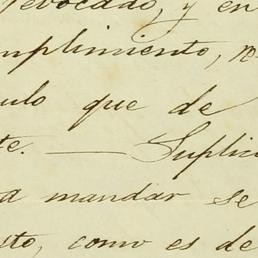 revocado, y en
mplimiento, n
ulo que de
te. — Suplico
a mandar se
sto, como es de